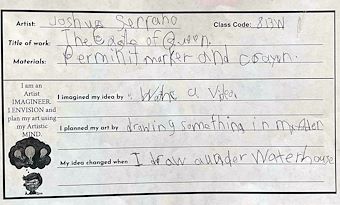 Artist: Joshua Serrano Class Code: 813W
Title of work: The Eagle of Queen.
Materials: Perminit marker and crayon.
I am an
Artist
IMAGINEER.
I ENVISION and
plan my art using
my Artistic
MIND.
I imagined my idea by a
I planned my art by drawing something in
My idea changed when I draw a Waterhouse